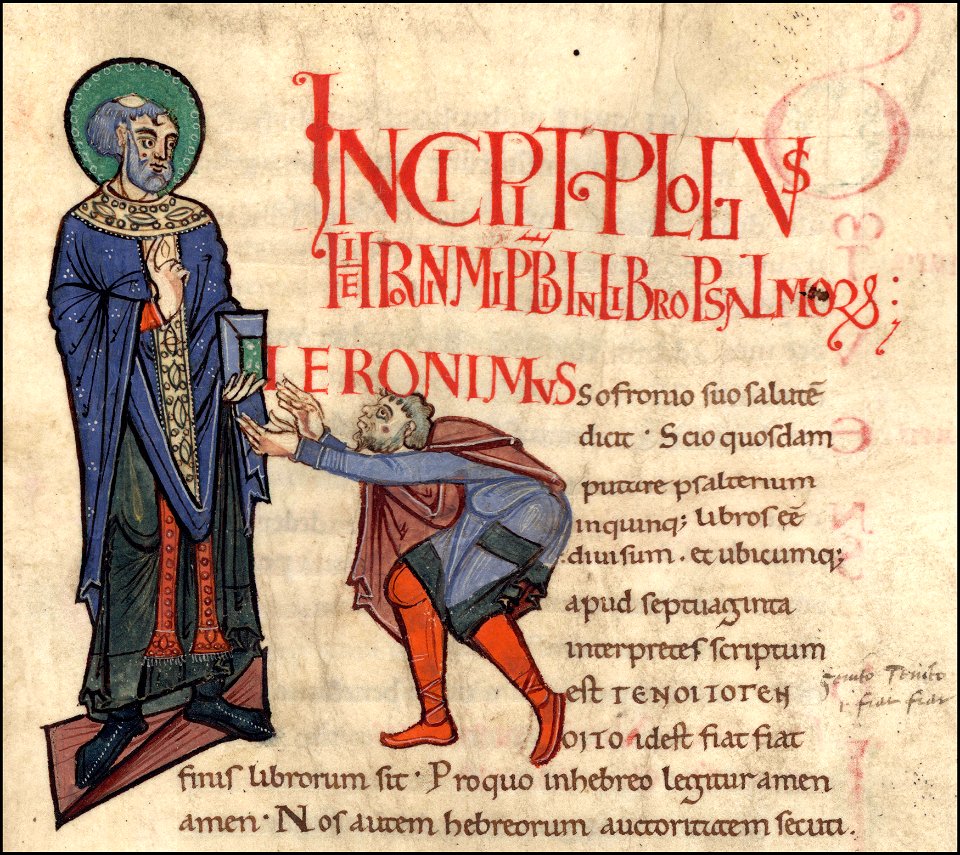 INCIPIT PLOGVS
HIERONIMI PBRI IN LIBRO PSALMORV:
IERONIMVS Sofronio suo salutē
dicit · Scio quosdam
putare psalterium
inquinq; libros eē
diuisum · et ubicumq;
apud septuaginta
interpretes scriptum
est ΓENOITOΓEN
OITO idest fiat fiat
finis librorum sit · Pro quo inhebreo legitur amen
amen · Nos autem hebreorum auctoritatem secuti .
fiat fiat